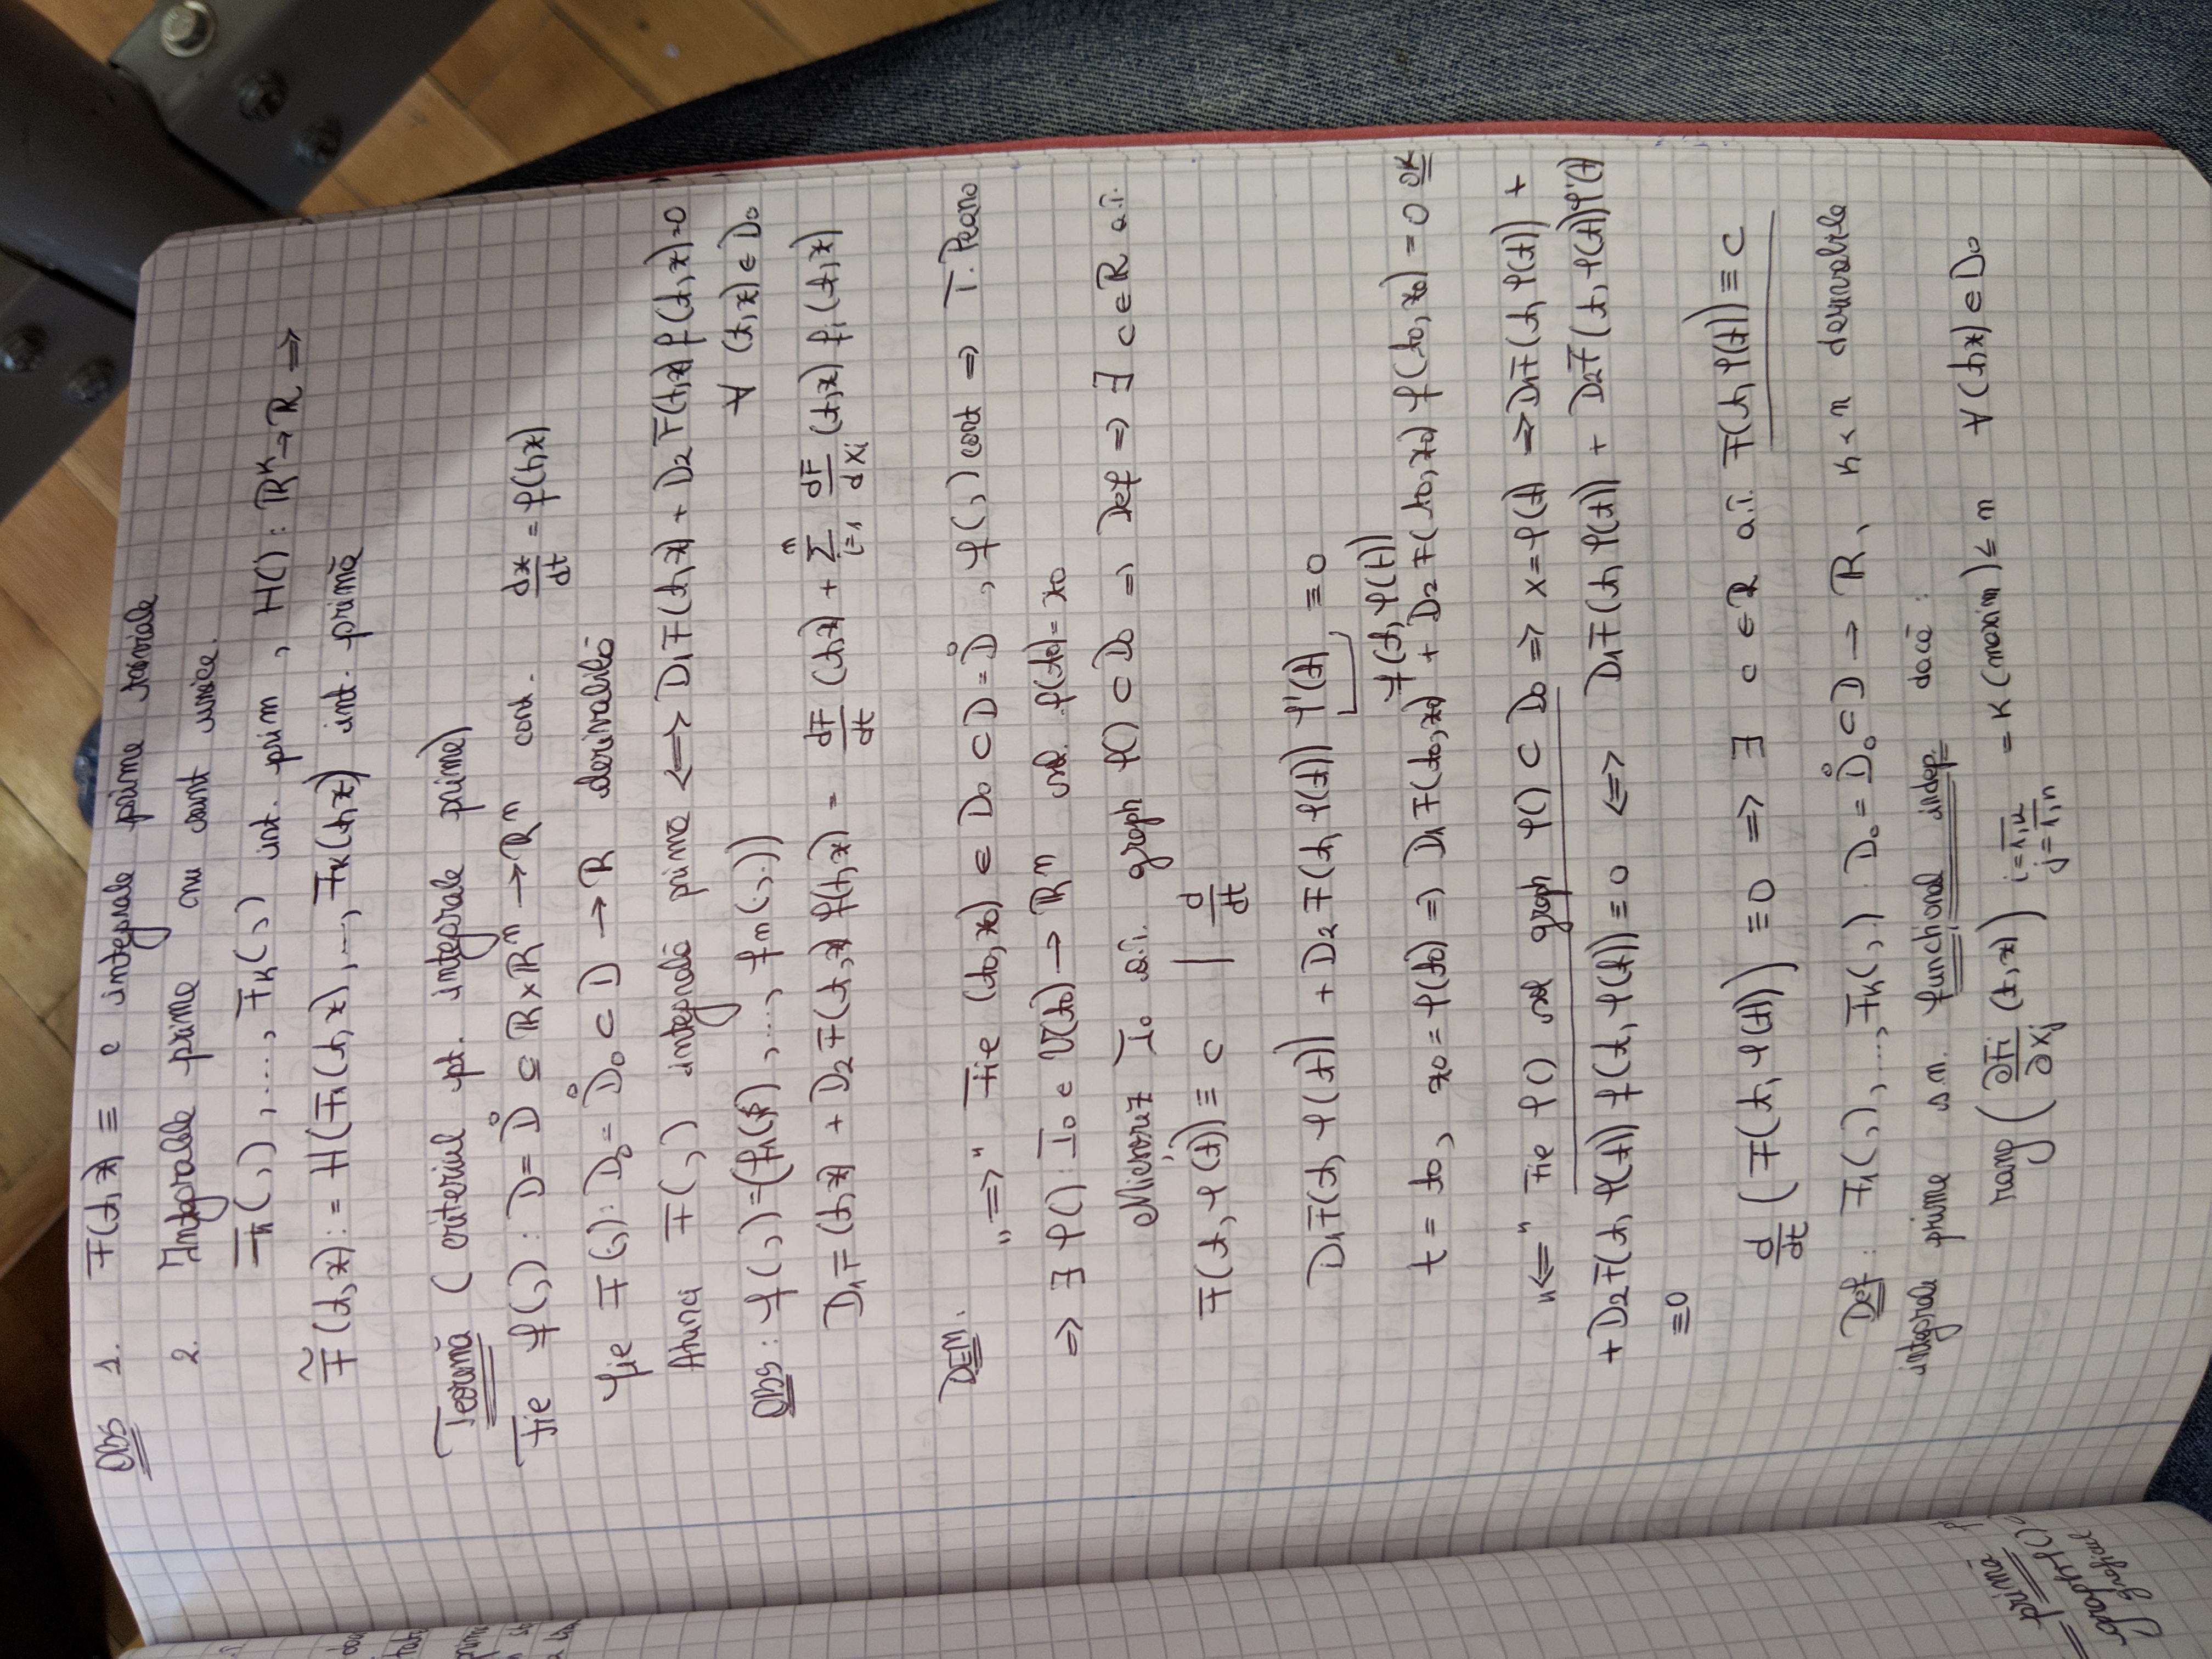 OBS 1. F(t,x) ≡ c integrale prime triviale
2. Integralele prime nu sunt unice.
F1(,) , ..., Fk(,) int. prim , H() : ℝ^k → ℝ ⟹
F̃(t,x) := H(F1(t,x), ..., Fk(t,x)) int. primă
Teoremă (criteriul pt. integrale prime)
Fie f(,) : D = D̊ ⊆ ℝ×ℝ^n → ℝ^n cont. dx/dt = f(t,x)
fie F(;) : D0 = D̊0 ⊂ D → ℝ derivabilă
Atunci F(,) integrală primă ⟺ D1F(t,x) + D2F(t,x) f(t,x) = 0
∀ (t,x) ∈ D0
OBS : f(,) = (f1(,), ..., fn(;.))
D1F(t,x) + D2F(t,x) f(t,x) = dF/dt (t,x) + Σ_{i=1}^{n} dF/dxi (t,x) fi(t,x)
DEM.
„⟹" Fie (t0,x0) ∈ D0 ⊂ D = D̊ , f(,) cont ⟹ T. Peano
⟹ ∃ φ() : I0 ∈ V(t0) → ℝ^n sol. φ(t0) = x0
Micșorez I0 a.î. graph φ() ⊂ D0 ⟹ Def ⟹ ∃ c ∈ ℝ a.î.
F(t, φ(t)) ≡ c | d/dt
D1F(t, φ(t)) + D2F(t, φ(t)) φ'(t) ≡ 0
f(t, φ(t))
t = t0, x0 = φ(t0) ⟹ D1F(t0,x0) + D2F(t0,x0) f(t0,x0) = 0 OK
„⟸" Fie φ() sol graph φ() ⊂ D0 ⟹ x = φ(t) ⟹ D1F(t, φ(t)) +
+ D2F(t, φ(t)) f(t, φ(t)) ≡ 0 ⟺ D1F(t, φ(t)) + D2F(t, φ(t)) φ'(t)
≡ 0
d/dt (F(t, φ(t))) ≡ 0 ⟹ ∃ c ∈ ℝ a.î. F(t, φ(t)) ≡ c
Def : F1(,), ..., Fk(,.) : D0 = D̊0 ⊂ D → ℝ, k < n derivabile
integrale prime s.n. funcțional indep. dacă :
rang (∂Fi/∂xj (t,x)) i=1,k j=1,n = k (maxim) ≤ n ∀(t,x) ∈ D0
primă
graph φ() =
graficul